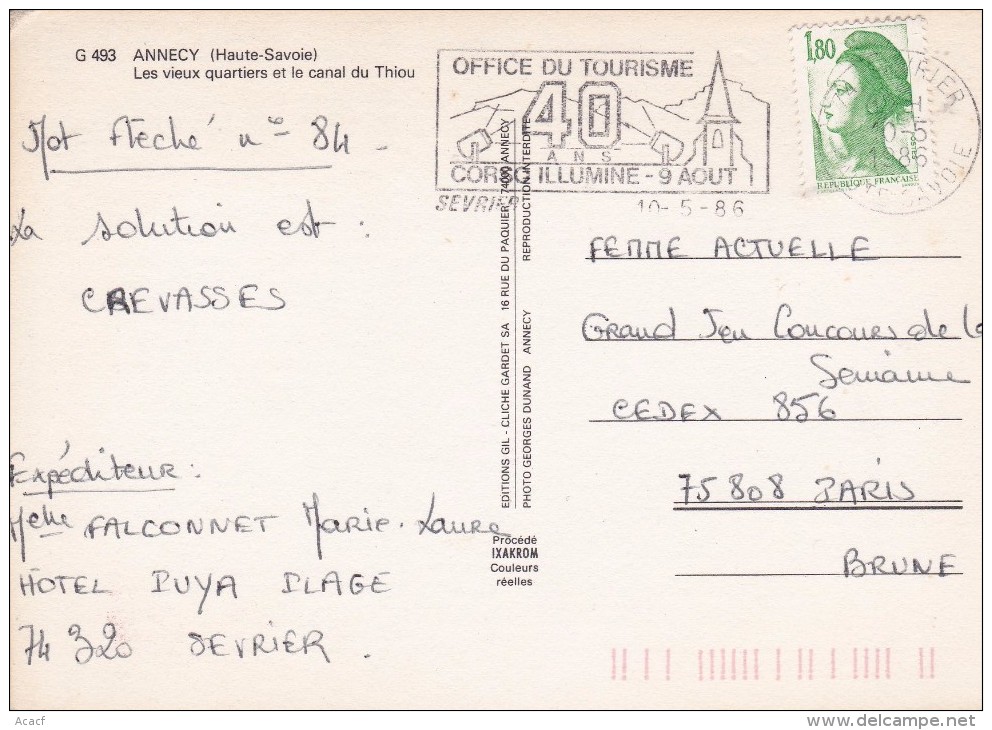 G 493 ANNECY (Haute-Savoie)
Les vieux quartiers et le canal du Thiou
Mot fléché n° 84
La solution est :
CREVASSES
Expéditeur :
Melle FALCONNET Marie-Laure
HOTEL PUYA PLAGE
74 320 SEVRIER.
EDITIONS GIL - CLICHE GARDET SA 16 RUE DU PAQUIER 74000 ANNECY
PHOTO GEORGES DUNAND ANNECY REPRODUCTION INTERDITE
Procédé
IXAKROM
Couleurs
réelles
OFFICE DU TOURISME
40
ANS
CORSO ILLUMINE - 9 AOUT
SEVRIER
10-5-86
1,80
REPUBLIQUE FRANÇAISE
FEMME ACTUELLE
Grand Jeu Concours de la
Semaine
CEDEX 856
75 808 PARIS
BRUNE
Acacf
delcampe.net